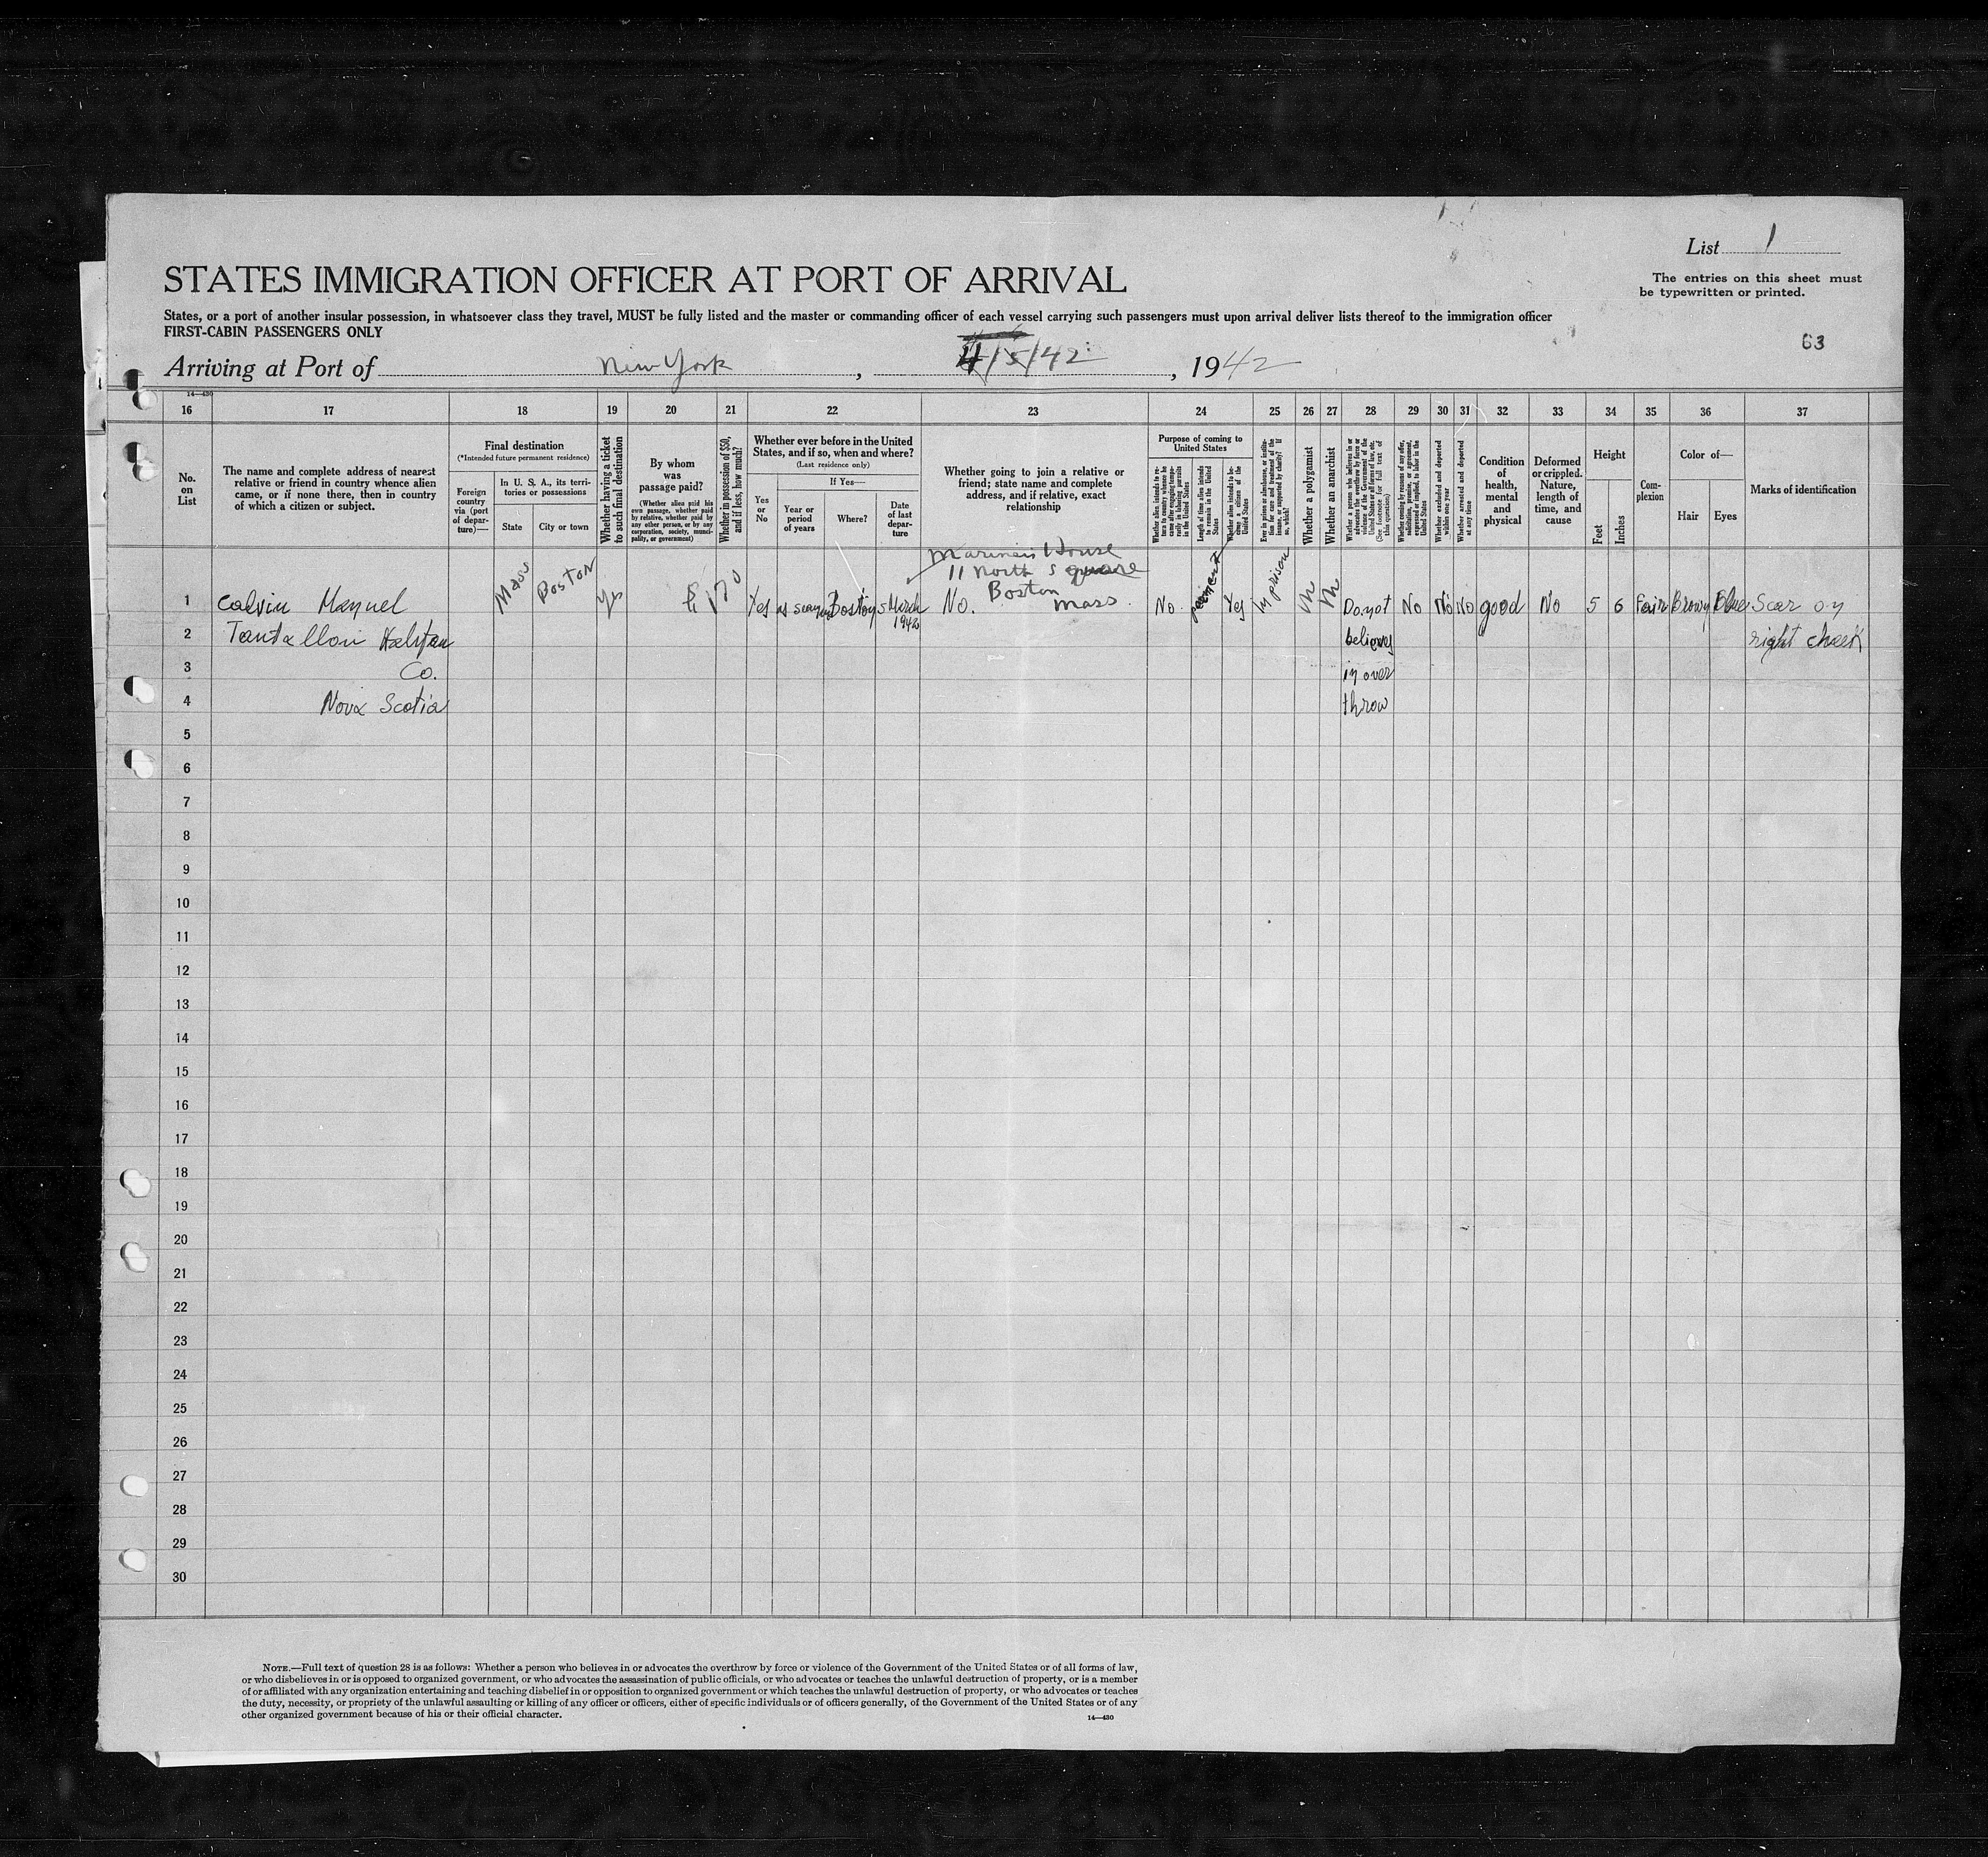 List 1
The entries on this sheet must
be typewritten or printed.
STATES IMMIGRATION OFFICER AT PORT OF ARRIVAL
States, or a port of another insular possession, in whatsoever class they travel, MUST be fully listed and the master or commanding officer of each vessel carrying such passengers must upon arrival deliver lists thereof to the immigration officer
FIRST-CABIN PASSENGERS ONLY
63
Arriving at Port of New York, 4/5/42, 1942
14—430
16 17 18 19 20 21 22 23 24 25 26 27 28 29 30 31 32 33 34 35 36 37
No.
on
List
The name and complete address of nearest
relative or friend in country whence alien
came, or if none there, then in country
of which a citizen or subject.
Final destination
(*Intended future permanent residence)
Foreign
country
via (port
of depar-
ture)—
In U. S. A., its terri-
tories or possessions
State
City or town
Whether having a ticket
to such final destination
By whom
was
passage paid?
(Whether alien paid his
own passage, whether paid
by relative, whether paid by
any other person, or by any
corporation, society, munici-
pality, or government)
Whether in possession of $50,
and if less, how much?
Whether ever before in the United
States, and if so, when and where?
(Last residence only)
Yes
or
No
If Yes—
Year or
period
of years
Where?
Date
of last
depar-
ture
Whether going to join a relative or
friend; state name and complete
address, and if relative, exact
relationship
Purpose of coming to
United States
Whether alien intends to re-
turn to country whence he
came after engaging tempo-
rarily in laboring pursuits
in the United States
Length of time alien intends
to remain in the United
States
Whether alien intends to be-
come a citizen of the
United States
Ever in prison or almshouse, or institu-
tion for care and treatment of the
insane, or supported by charity? If
so, which?
Whether a polygamist
Whether an anarchist
Whether a person who believes in or
advocates the overthrow by force or
violence of the Government of the
United States or all forms of law, etc.
(See footnote for full text of
this question)
Whether coming by reason of any offer,
solicitation, promise, or agreement,
expressed or implied, to labor in the
United States
Whether excluded and deported
within one year
Whether arrested and deported
at any time
Condition
of
health,
mental
and
physical
Deformed
or crippled.
Nature,
length of
time, and
cause
Height
Feet
Inches
Com-
plexion
Color of—
Hair
Eyes
Marks of identification
Mariners House
11 North Square
Boston
Mass.
1 Calvin Manuel Mass Boston yes Yes as seaman Boston 5 March No. No. permanent Yes Do not No No No good No 5 6 Fair Brown Blue Scar on
1942
2 Tantallon Halifax believe right cheek
3 Co. in over
4 Nova Scotia throw
5
6
7
8
9
10
11
12
13
14
15
16
17
18
19
20
21
22
23
24
25
26
27
28
29
30
NOTE.—Full text of question 28 is as follows: Whether a person who believes in or advocates the overthrow by force or violence of the Government of the United States or of all forms of law,
or who disbelieves in or is opposed to organized government, or who advocates the assassination of public officials, or who advocates or teaches the unlawful destruction of property, or is a member
of or affiliated with any organization entertaining and teaching disbelief in or opposition to organized government or which teaches the unlawful destruction of property, or who advocates or teaches
the duty, necessity, or propriety of the unlawful assaulting or killing of any officer or officers, either of specific individuals or of officers generally, of the Government of the United States or of any
other organized government because of his or their official character.
14—430